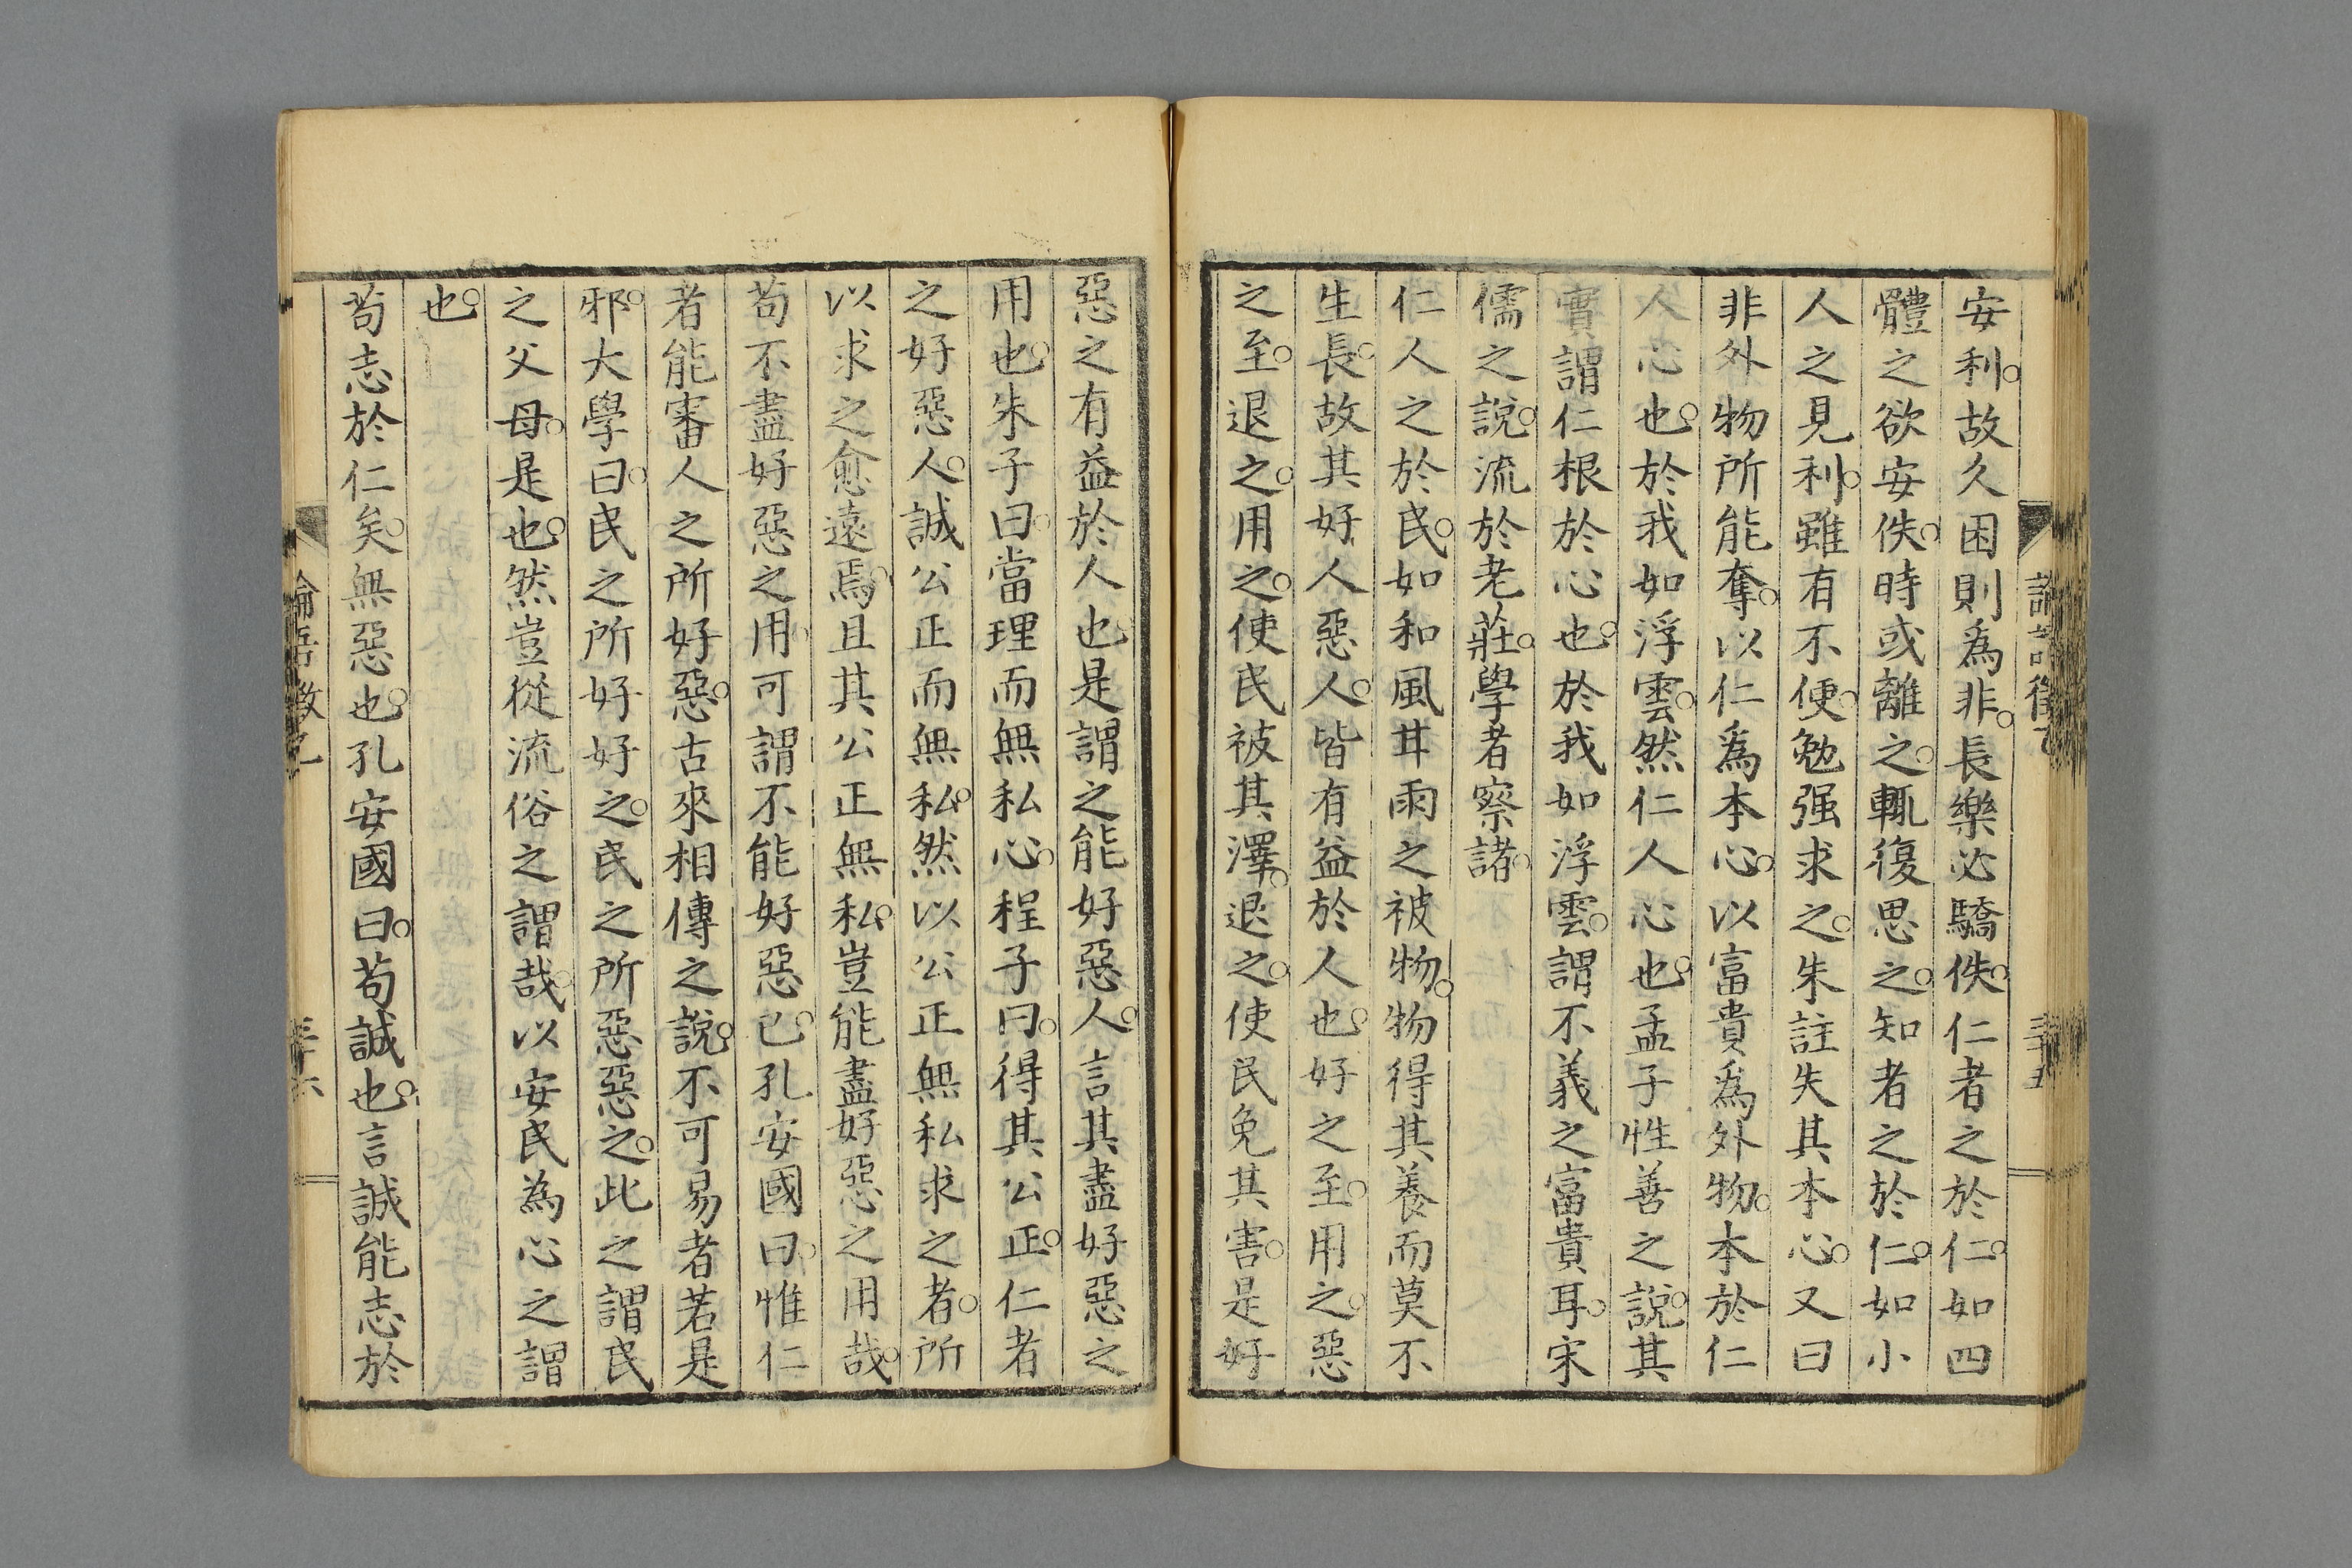 安利。故久困則爲非。長樂必驕佚。仁者之於仁。如四
體之欲安佚。時或離之。輒復思之。知者之於仁。如小
人之見利。雖有不便。勉强求之。朱註失其本心。又曰
非外物所能奪。以仁爲本心。以富貴爲外物。本於仁
人心也。於我如浮雲。然仁人心也。孟子性善之說。其
實謂仁根於心也。於我如浮雲。謂不義之富貴耳。宋
儒之說。流於老莊。學者察諸。
仁人之於民。如和風甘雨之被物。物得其養而莫不
生長。故其好人惡人。皆有益於人也。好之至。用之。惡
之至。退之。用之。使民被其澤。退之。使民免其害。是好
惡之有益於人也。是謂之能好惡人。言其盡好惡之
用也。朱子曰。當理而無私心。程子曰。得其公正。仁者
之好惡人。誠公正而無私。然以公正無私求之者。所
以求之愈遠焉。且其公正無私。豈能盡好惡之用哉。
苟不盡好惡之用。可謂不能好惡已。孔安國曰。惟仁
者能審人之所好惡。古來相傳之說。不可易者若是
邪。大學曰。民之所好好之。民之所惡惡之。此之謂民
之父母。是也。然豈從流俗之謂哉。以安民為心之謂
也。
苟志於仁矣。無惡也。孔安國曰。苟誠也。言誠能志於